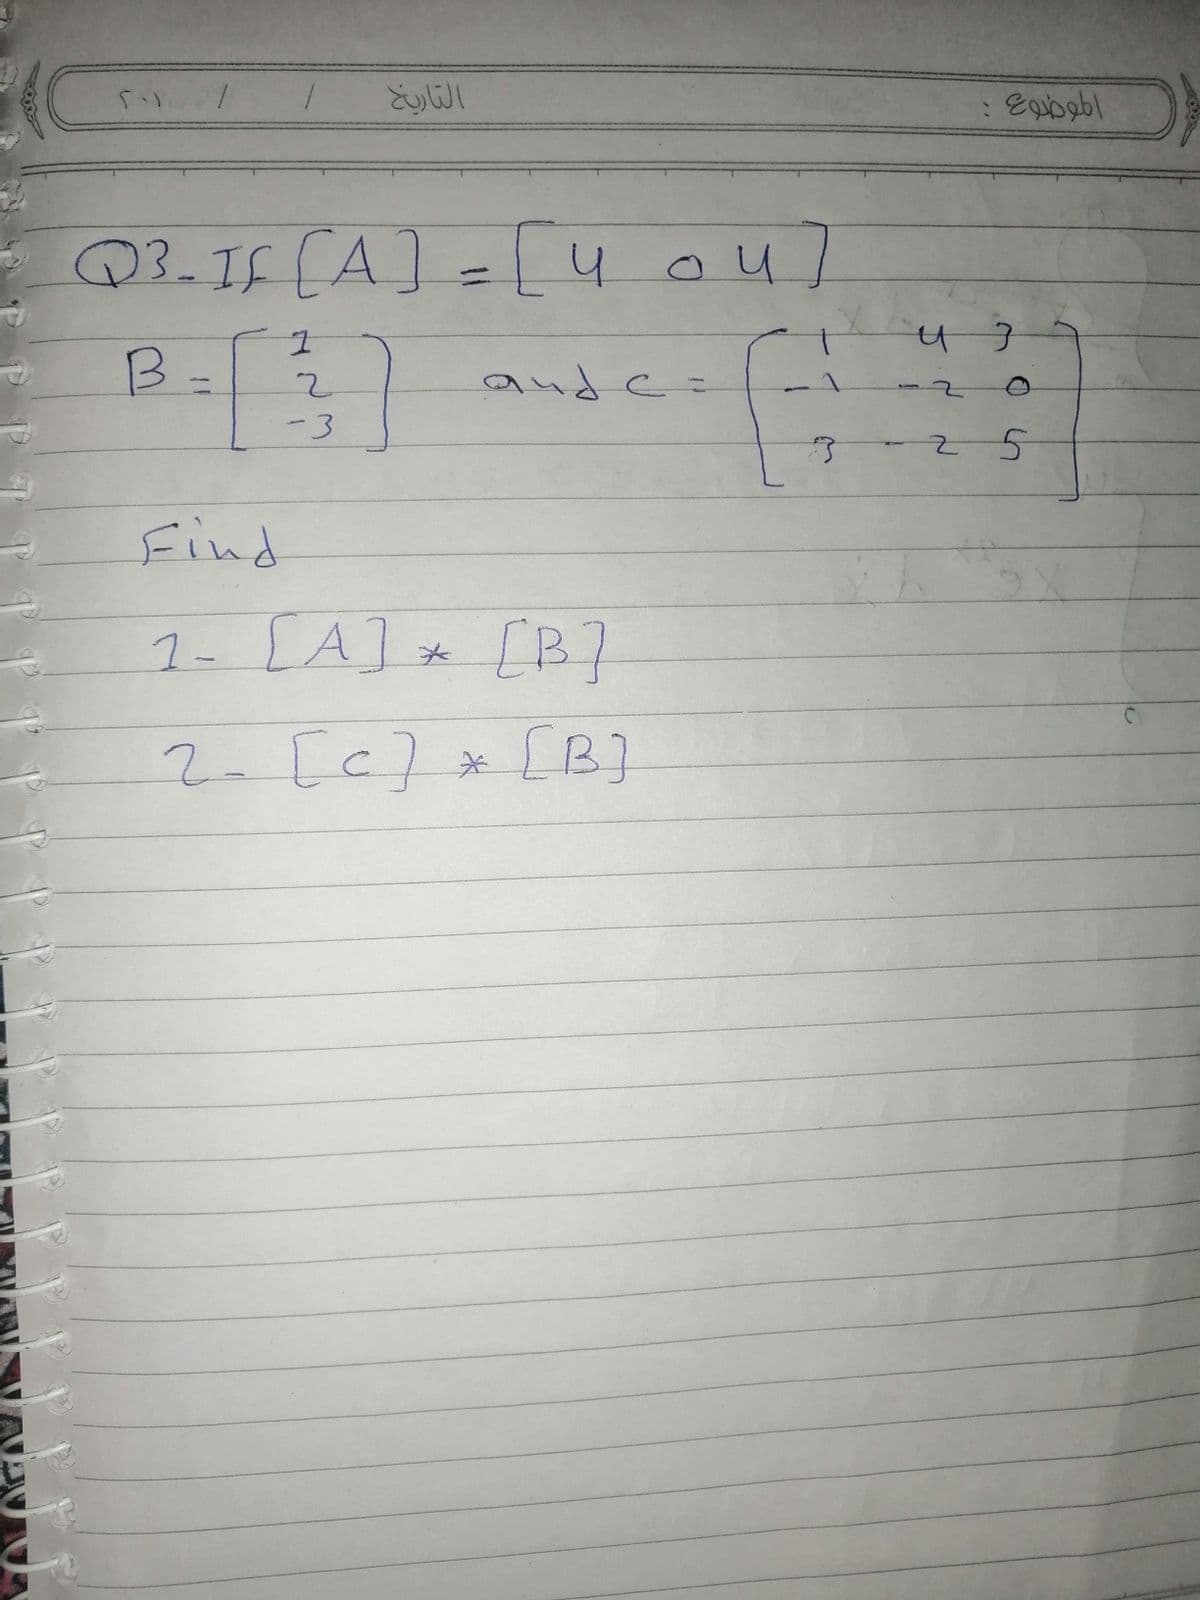 الموضوع : التاريخ / / ٢٠١
Q3- If [A] = [4 0 4]
B = [1 2 -3] and c = [1 4 3
-1 -2 0
3 -2 5]
Find
1- [A] * [B]
2- [c] * [B]